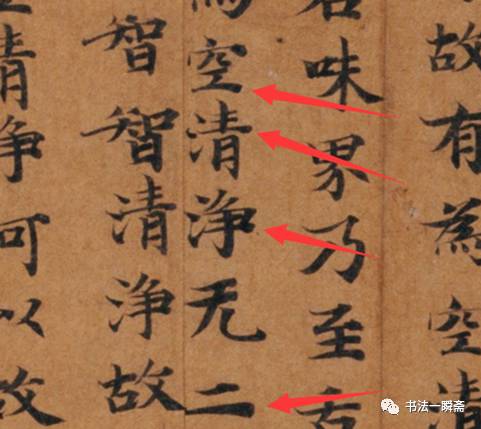 故有為空清
味界乃至舌
為空清淨无二
智智清淨故
清淨何以故
书法一瞬斋